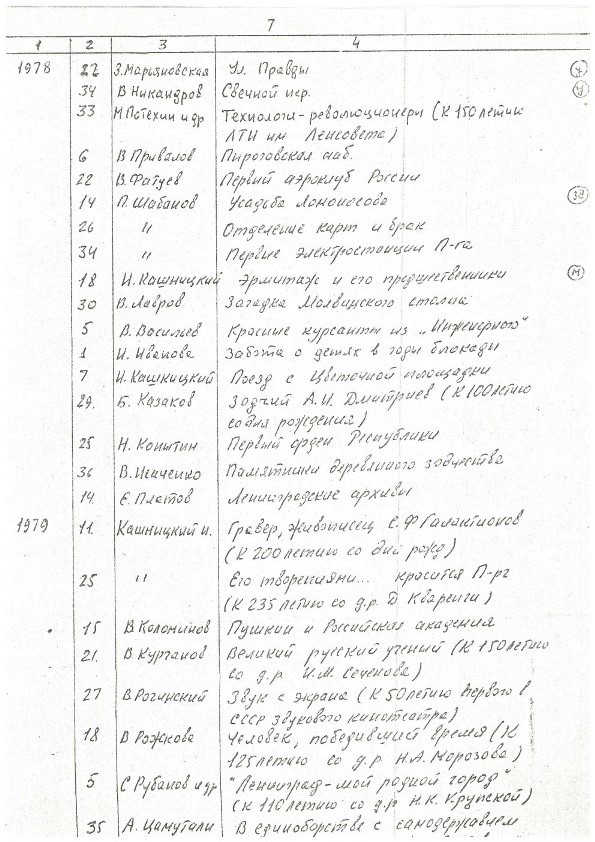 7
1 2 3 4
1978 22 З. Марьяновская Ул. Правды У
34 В Никандров Свечной пер. У
33 М Потехин и др Технологи-революционеры (К 150 летию
ЛТИ им Ленсовета)
6 В Привалов Пироговская наб.
22 В. Фатуев Первый аэроклуб России
14 П. Шабанов Усадьба Ломоносова
26 " Отделение карт и брак
34 " Первые электростанции П-га
18 И. Кашницкий Эрмитаж и его предшественники М
30 В. Лавров Загадка Молвинского столпа
5 В. Васильев Красные курсанты из "Инженерного"
1 И. Иванова Забота о детях в годы блокады
7 И. Кашницкий Поезд с Цветочной площадки
29. Б. Казаков Зодчий А.И. Дмитриев (К 100 летию
со дня рождения)
25 Н. Коныгин Первый орден Республики
36 В. Исаченко Памятники деревянного зодчества
14. Е. Платов Ленинградские архивы
1979 11. Кашницкий и. Гравер, живописец С. Ф Галактионов
(К 200 летию со дня рожд)
25 " Его творениями... красится П-рг
(К 235 летию со д.р. Д Кваренги)
15 В Коломинов Пушкин и Российская академия
21. В. Курганов Великий русский учений (К 150 летию
со д.р И.М. Сеченова)
27 В Рогинский Звук с экрана (К 50 летию первого в
СССР звукового кинотеатра)
18 В Рожкова Человек, победивший время (К
125 летию со д.р Н.А. Морозова)
5 С Рубанов и др "Ленинград-мой родной город"
(К 110 летию со д.р Н.К. Крупской)
35 А. Цамутали В единоборстве с самодержавием